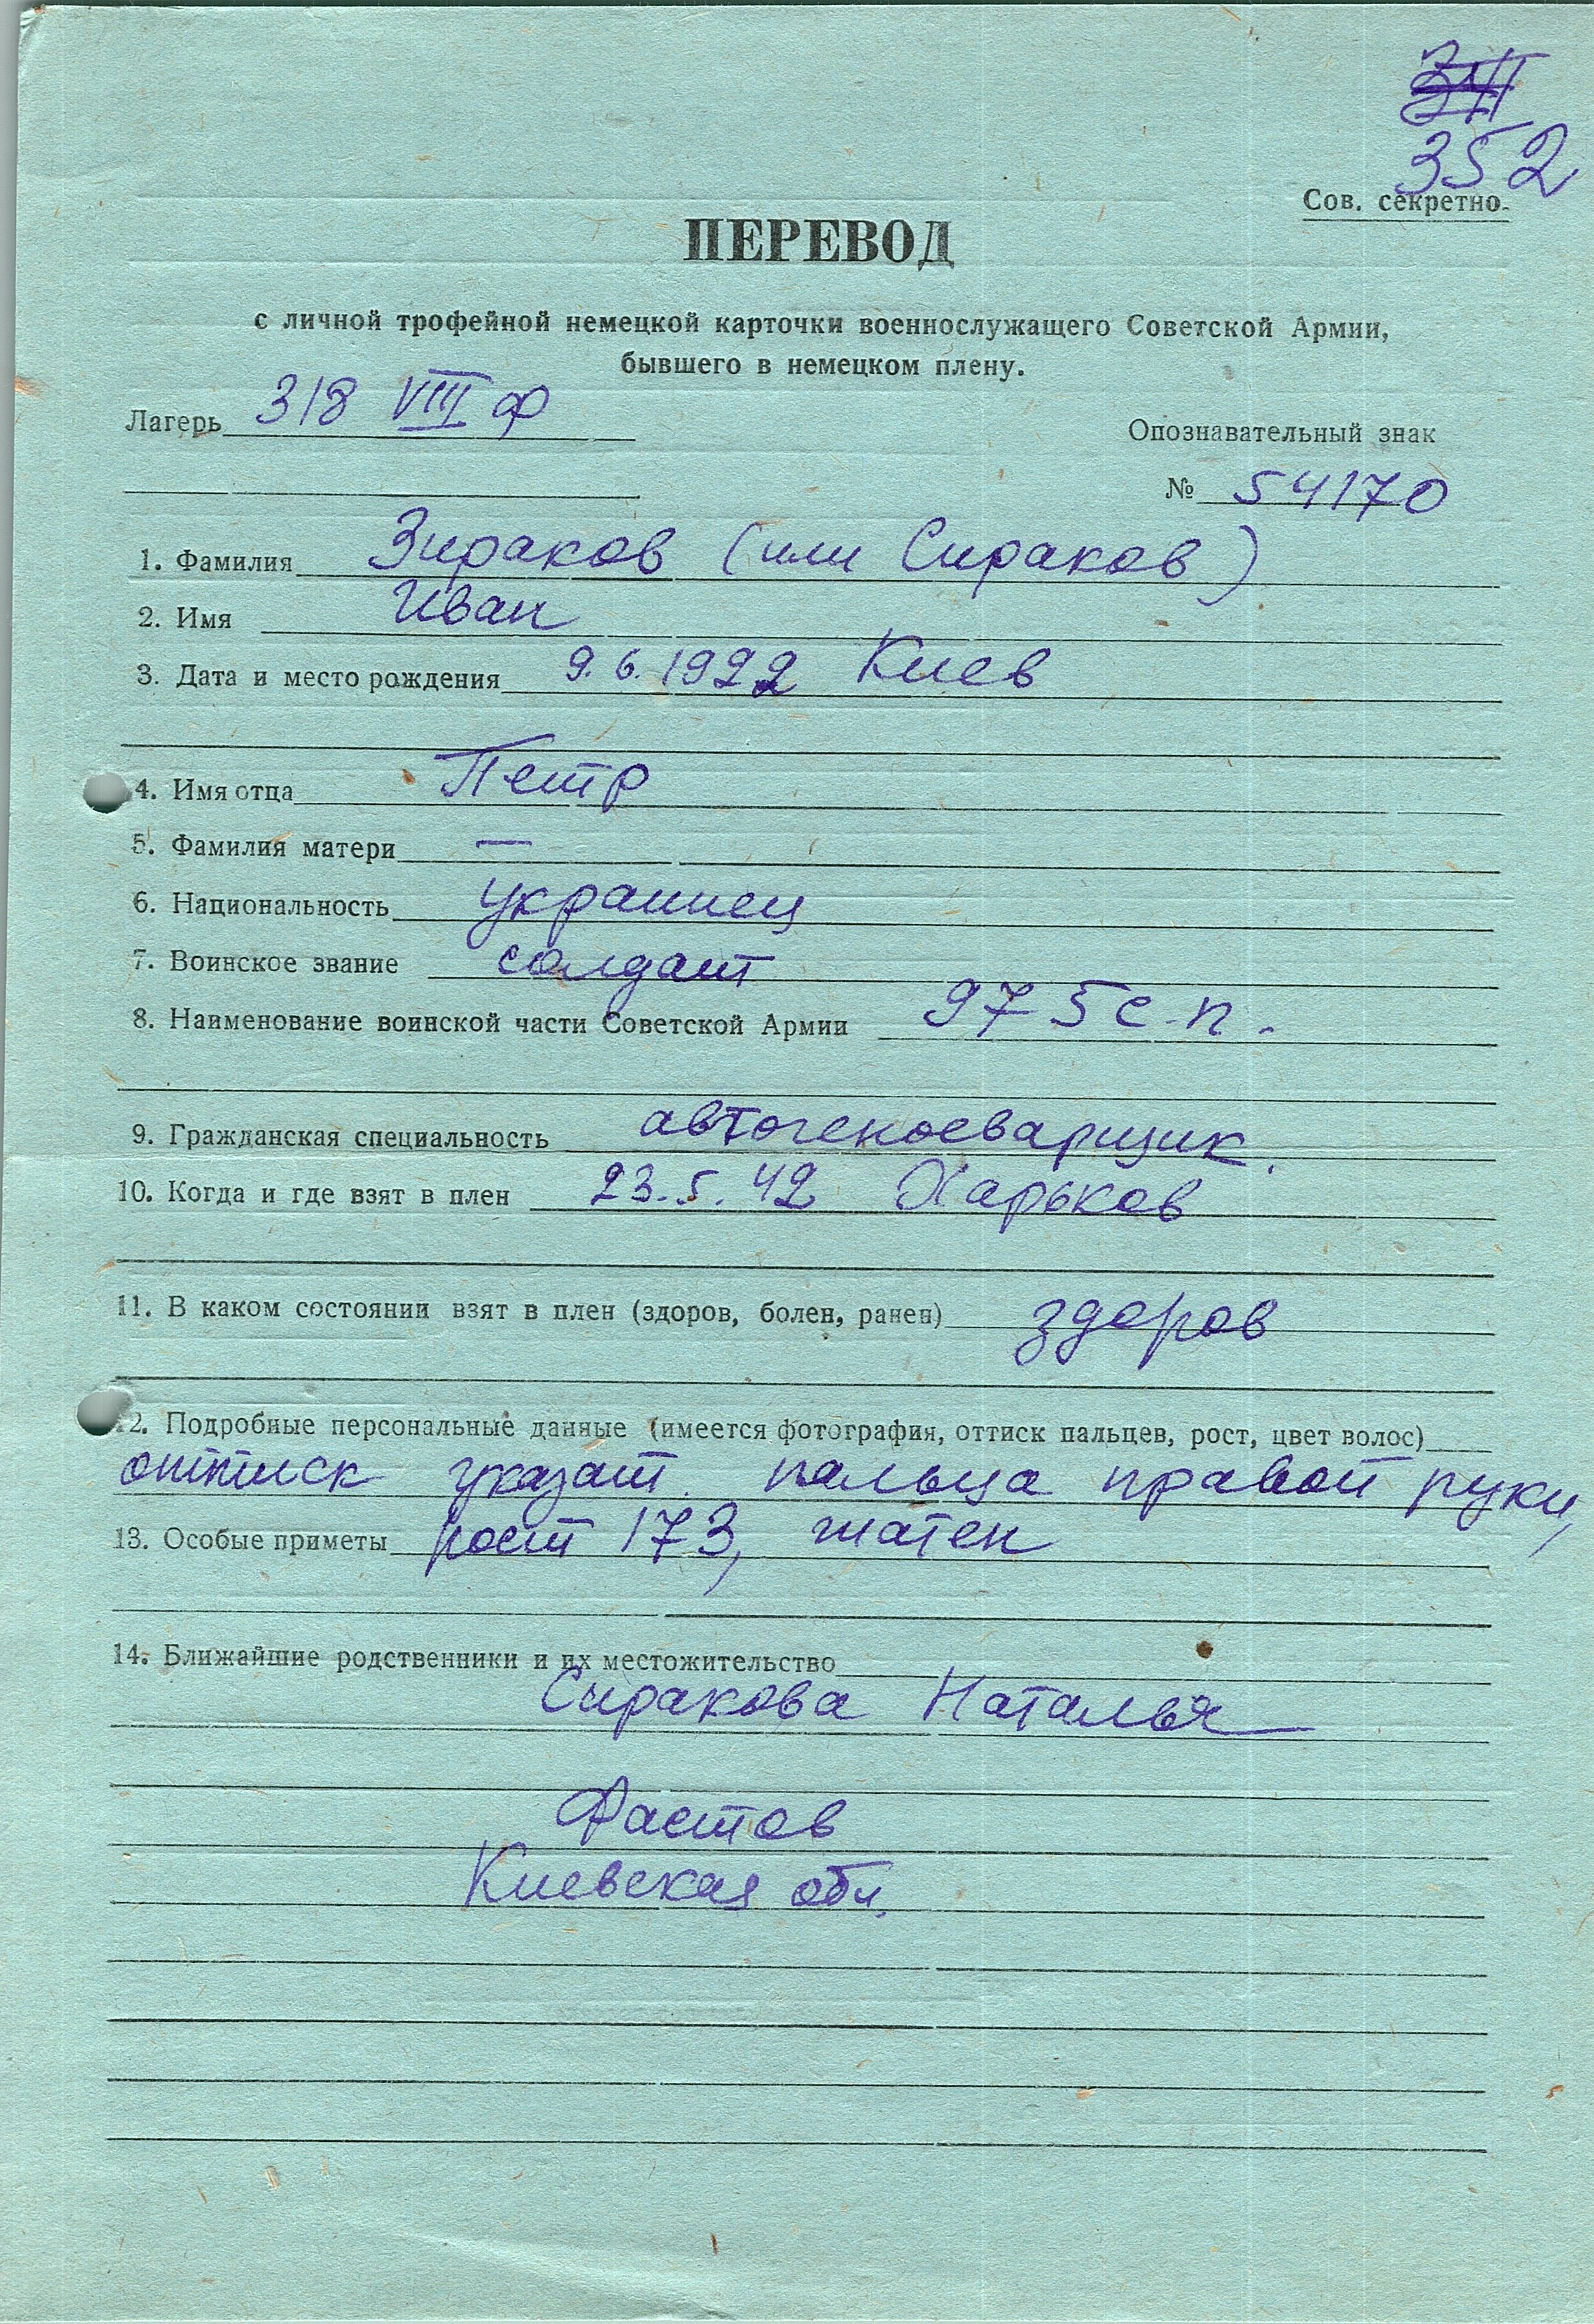 352
Сов. секретно.
ПЕРЕВОД
с личной трофейной немецкой карточки военнослужащего Советской Армии,
бывшего в немецком плену.
Лагерь 318 VIII ф
Опознавательный знак
№ 54170
1. Фамилия Зираков (или Сираков)
2. Имя Иван
3. Дата и место рождения 9.6.1922 Киев
4. Имя отца Петр
5. Фамилия матери —
6. Национальность украинец
7. Воинское звание солдат
8. Наименование воинской части Советской Армии 975 с.п.
9. Гражданская специальность автогеносварщик.
10. Когда и где взят в плен 23.5.42 Харьков
11. В каком состоянии взят в плен (здоров, болен, ранен) здоров
12. Подробные персональные данные (имеется фотография, оттиск пальцев, рост, цвет волос)
оттиск указат. пальца правой руки,
13. Особые приметы рост 173, шатен
14. Ближайшие родственники и их местожительство
Сиракова Наталья
Фастов
Киевская обл.